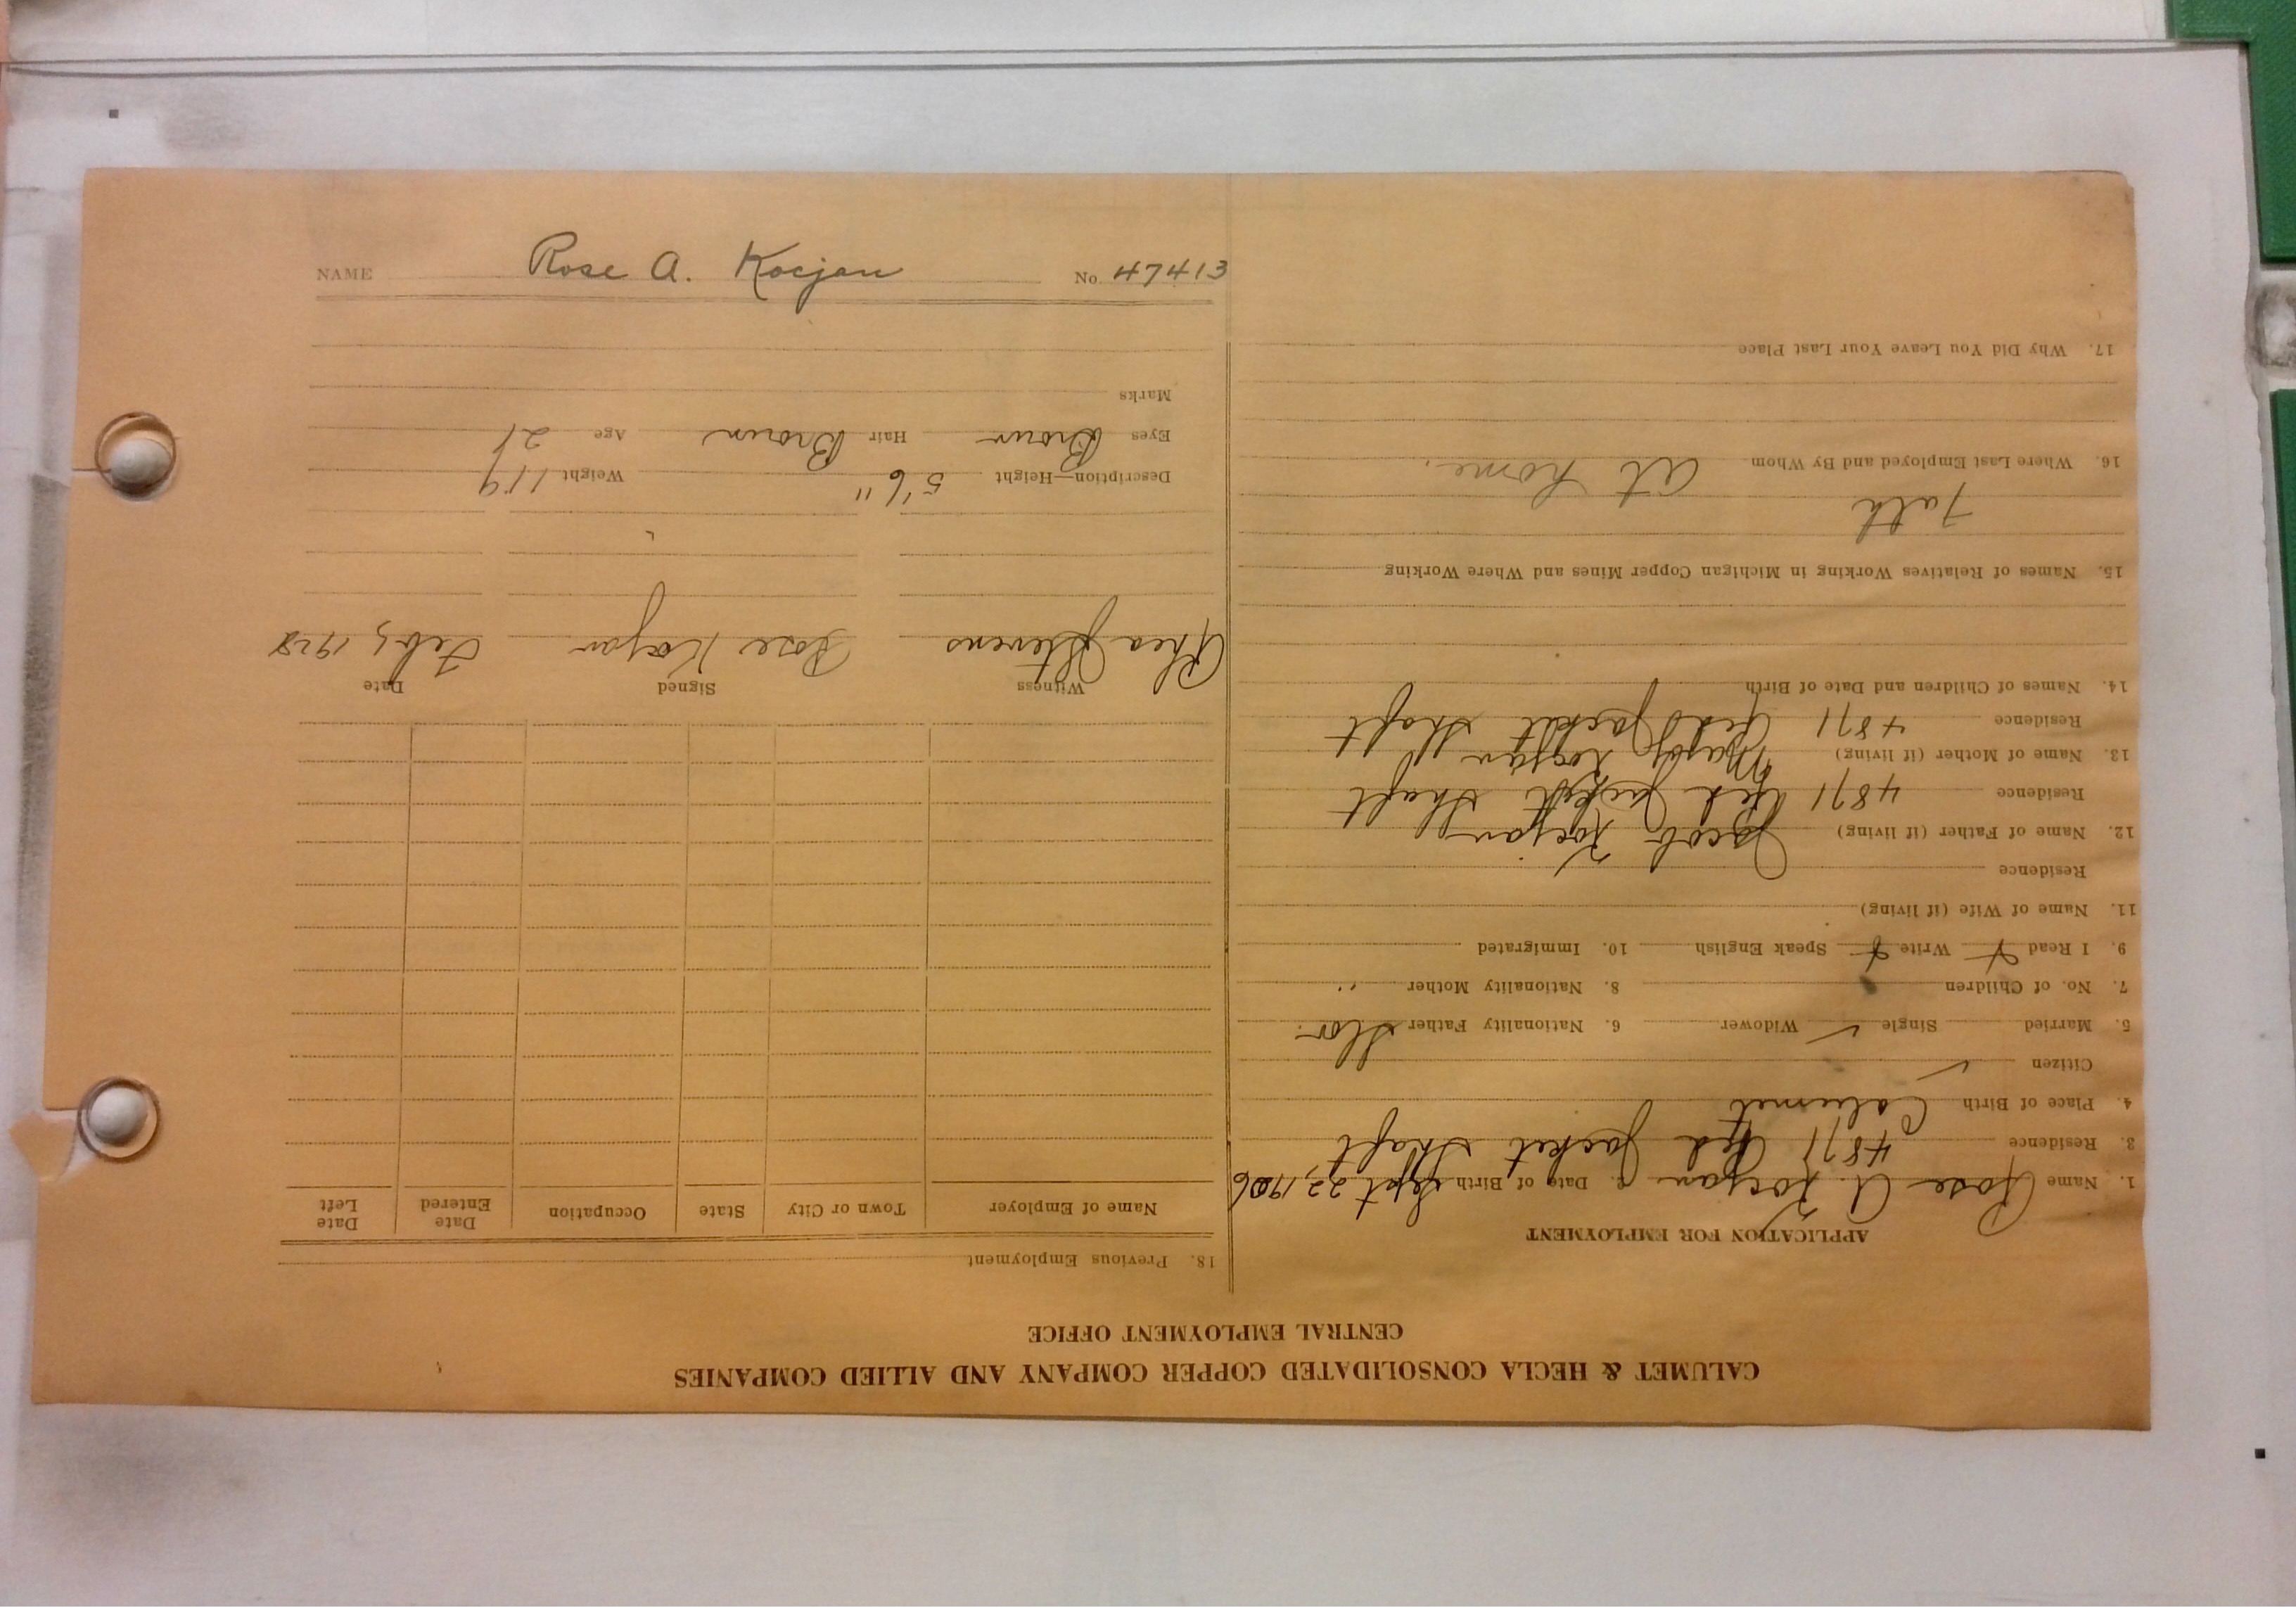 CALUMET & HECLA CONSOLIDATED COPPER COMPANY AND ALLIED COMPANIES
CENTRAL EMPLOYMENT OFFICE
APPLICATION FOR EMPLOYMENT
1. Name Rose A. Kocjan 2. Date of Birth Sept 22, 1906
3. Residence 4871 Red Jacket Shaft
4. Place of Birth Calumet
Citizen ✓
5. Married Single ✓ Widower 6. Nationality Father Slov.
7. No. of Children 8. Nationality Mother "
9. I Read Write Speak English 10. Immigrated
11. Name of Wife (if living)
Residence
12. Name of Father (if living) Jacob Kocjan
Residence 4871 Red Jacket Shaft
13. Name of Mother (if living) Mary Kocjan
Residence 4871 Red Jacket Shaft
14. Names of Children and Date of Birth
15. Names of Relatives Working in Michigan Copper Mines and Where Working
16. Where Last Employed and By Whom At home.
17. Why Did You Leave Your Last Place
18. Previous Employment
Name of Employer Town or City State Occupation Date Entered Date Left
Witness Signed Date
Rhea Stevens Rose Kocjan Feb, 1928
Description—Height 5'6" Weight 119
Eyes Brown Hair Brown Age 21
Marks
NAME Rose A. Kocjan No. 47413